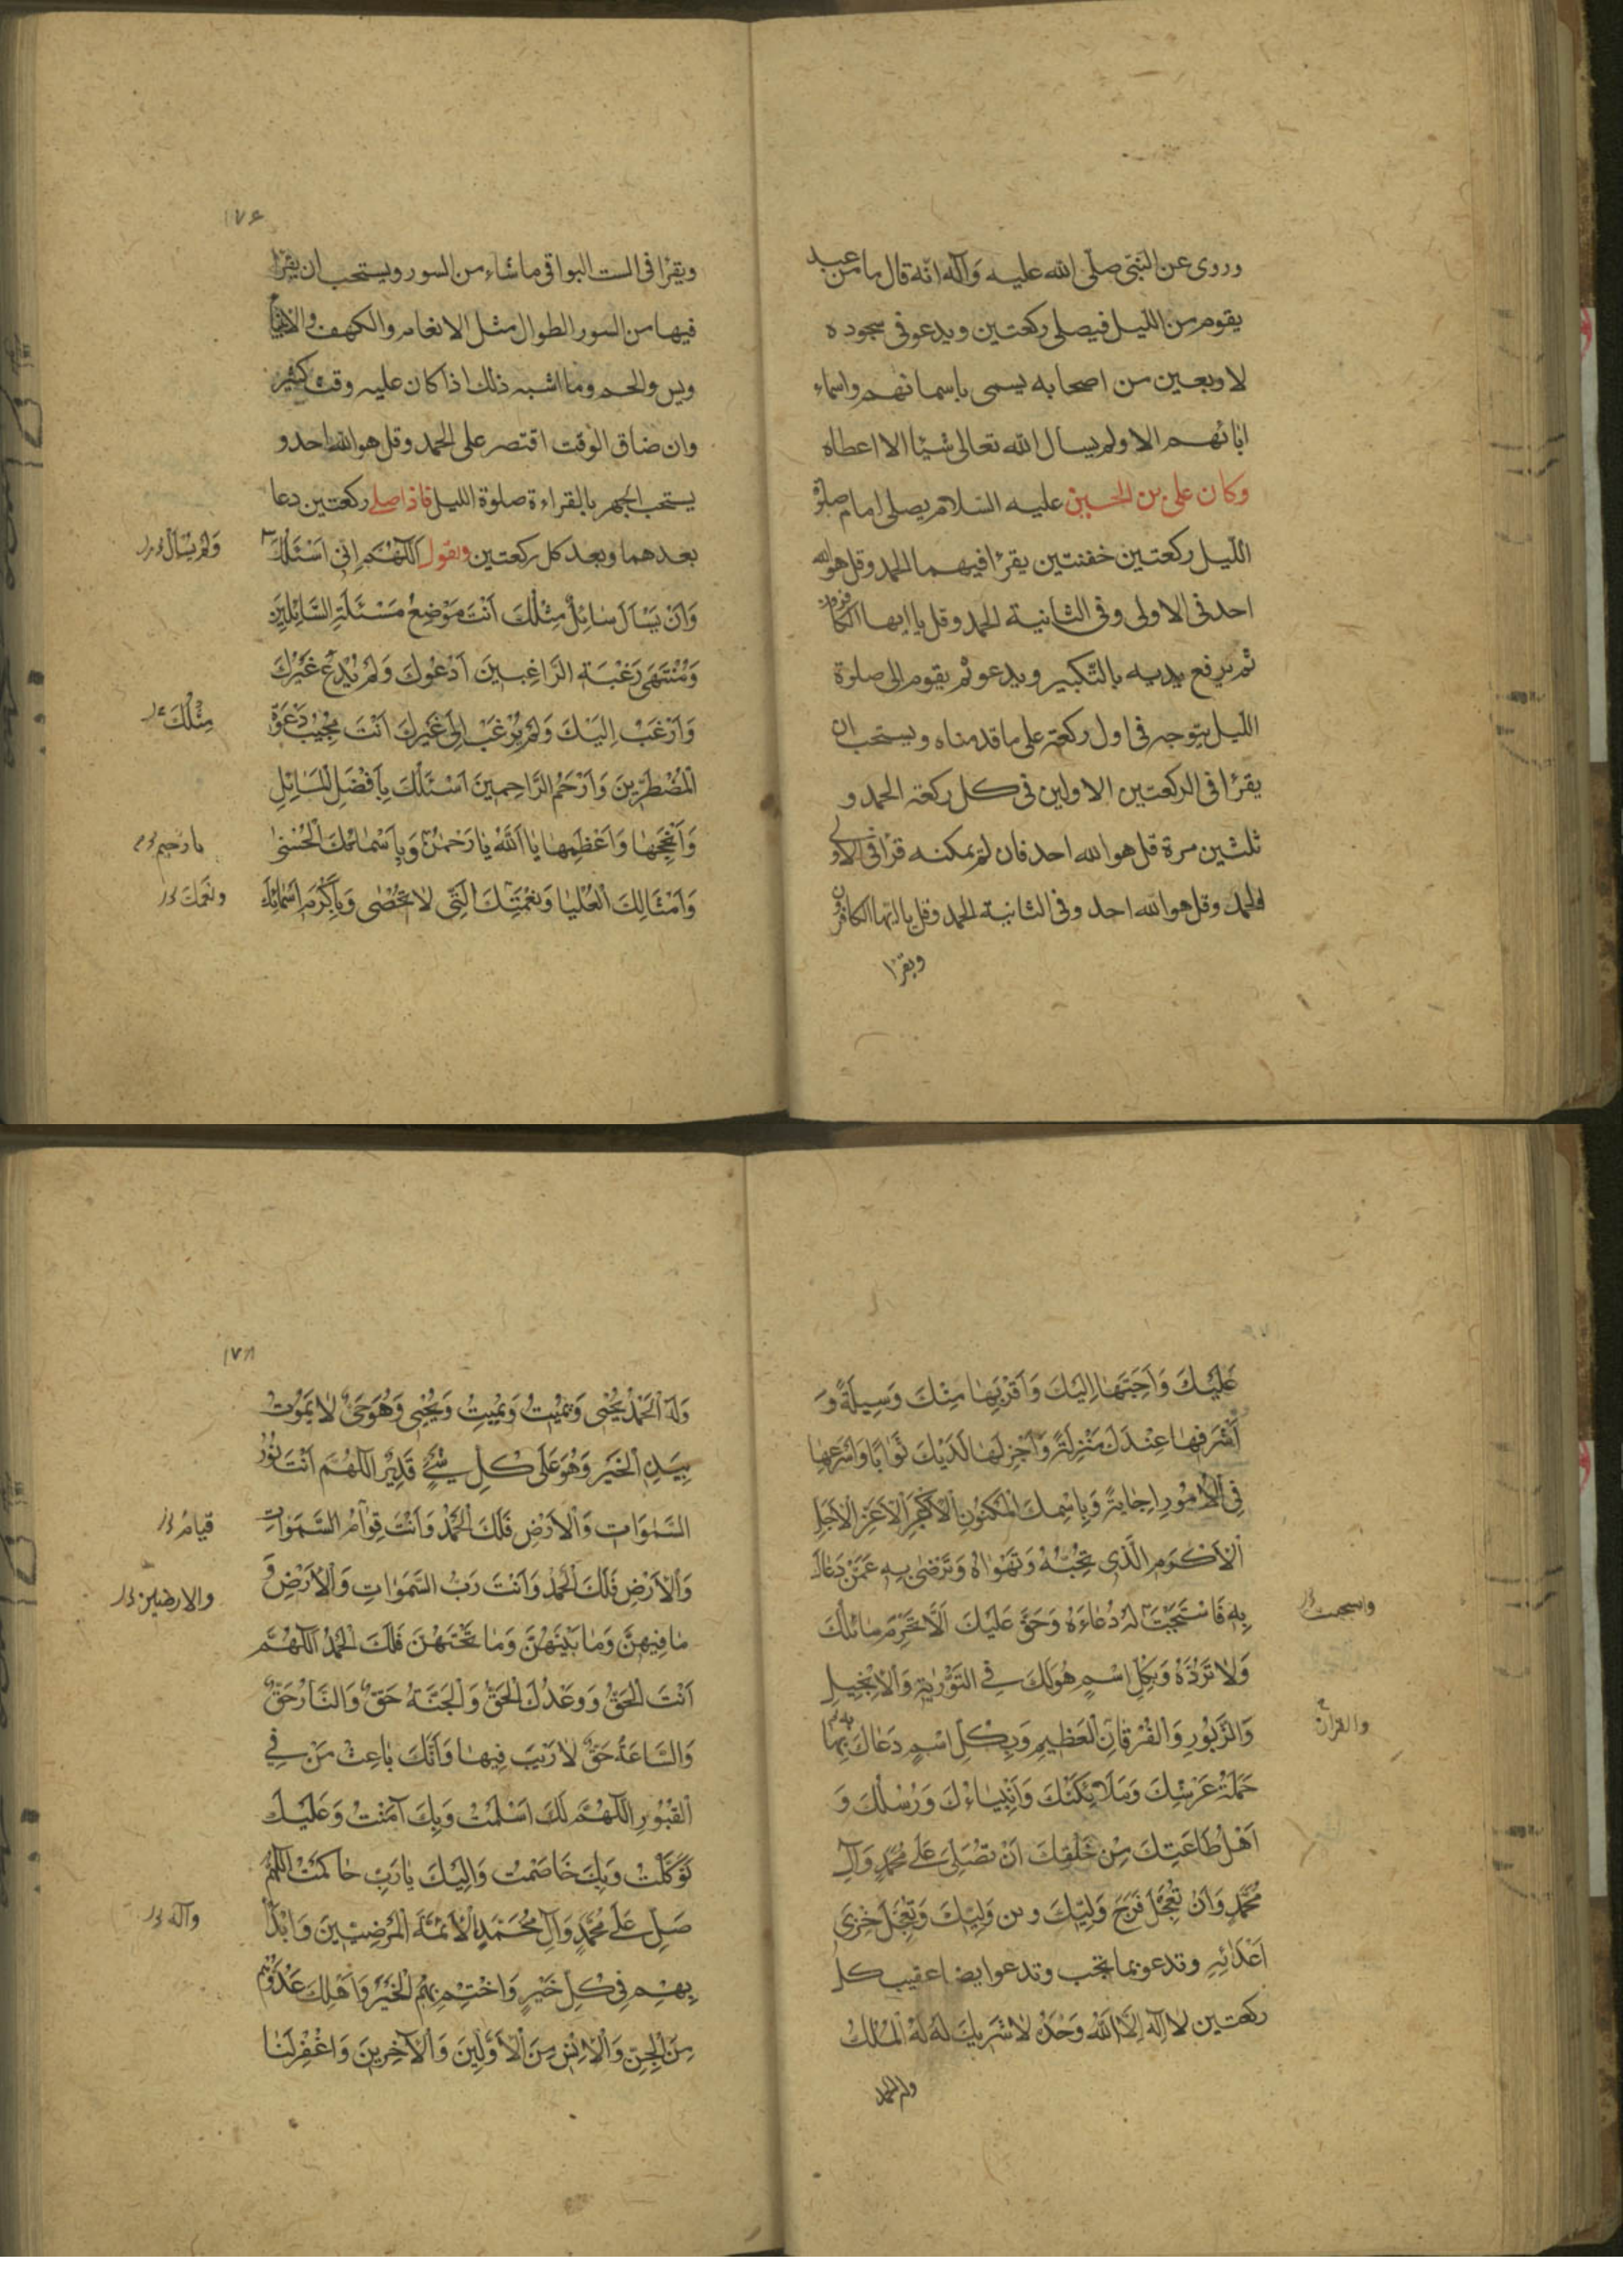 وروى عن النبي صلى الله عليه وآله انه قال ما من عبد
يقوم من الليل فيصلى ركعتين ويدعو في سجوده
لاربعين من اصحابه يسمى باسمائهم واسماء
ابائهم الا ولم يسال الله تعالى شيئا الا اعطاه
وكان على بن الحسين عليه السلام يصلى امام صلوة
الليل ركعتين خفيفتين يقرا فيهما الحمد وقل هو الله
احد فى الاولى وفى الثانية الحمد وقل يا ايها الكافرون
ثم يرفع يديه بالتكبير ويدعو ثم يقوم الى صلوة
الليل يتوجه فى اول ركعة على ما قدمناه ويستحب ان
يقرا فى الركعتين الاولين فى كل ركعة الحمد و
ثلثين مرة قل هو الله احد فان لم يمكنه قرا فى الاولى
الحمد وقل هو الله احد وفى الثانية الحمد وقل يا ايها الكافرون
ويقرا
۱۷۶
ويقرا فى الست البواقى ما شاء من السور ويستحب ان يقرا
فيها من السور الطوال مثل الانعام والكهف والانبيا
ويس والحم وما اشبه ذلك اذا كان عليه وقت كثير
وان ضاق الوقت اقتصر على الحمد وقل هو الله احد و
يستحب الجهر بالقراءة صلوة الليل فاذا صلى ركعتين دعا
بعدهما وبعد كل ركعتين ويقول اَللّهُمَّ اِنّى اَسْئَلُكَ
وَلَمْ يُسْأَلْ
وَاَنْ يَسْاَلَ سَائِلٌ مِثْلَكَ اَنْتَ مَوْضِعُ مَسْئَلَةِ السَّائِلينَ
وَمُنْتَهَى رَغْبَةِ الرَّاغِبينَ اَدْعُوكَ وَلَمْ يُدْعَ غَيْرُكَ
وَاَرْغَبُ اِلَيْكَ وَلَمْ يُرْغَبْ اِلى غَيْرِكَ اَنْتَ مُجيبُ دَعْوَةِ
مِثْلُكَ
الْمُضْطَرّينَ وَاَرْحَمُ الرَّاحِمينَ اَسْئَلُكَ بِاَفْضَلِ الْمَسَائِلِ
وَاَنْجَحِهَا وَاَعْظَمِهَا يَا اَللّهُ يَا رَحْمنُ وَبِاَسْمَائِكَ الْحُسْنى
يا رحيم
وَاَمْثَالِكَ الْعُلْيَا وَنِعْمَتِكَ الَّتى لَا تُحْصى وَبِاَكْرَمِ اَسْمَائِكَ
ونعمك
عَلَيْكَ وَاَحَبِّهَا اِلَيْكَ وَاَقْرَبِهَا مِنْكَ وَسيلَةً وَ
اَشْرَفِهَا عِنْدَكَ مَنْزِلَةً وَاَجْزَلِهَا لَدَيْكَ ثَوَابًا وَاَسْرَعِهَا
فِى الْاُمُورِ اِجَابَةً وَبِاسْمِكَ الْمَكْنُونِ الْاَكْبَرِ الْاَعَزِّ الْاَجَلِّ
الْاَكْرَمِ الَّذى تُحِبُّهُ وَتَهْوَاهُ وَتَرْضى بِه عَمَّنْ دَعَاكَ
بِه فَاسْتَجَبْتَ لَهُ دُعَاءَهُ وَحَقٌّ عَلَيْكَ اَلَّا تَحْرِمَ سَائِلَكَ
واستجبت
وَلَا تَرُدَّهُ وَبِكُلِّ اسْمٍ هُوَ لَكَ فِى التَّوْرٰيةِ وَالْاِنْجيلِ
وَالزَّبُورِ وَالْفُرْقَانِ الْعَظيمِ وَبِكُلِّ اسْمٍ دَعَاكَ بِهَا
به
والقران
حَمَلَةُ عَرْشِكَ وَمَلَائِكَتُكَ وَاَنْبِيَاءُكَ وَرُسُلُكَ وَ
اَهْلُ طَاعَتِكَ مِنْ خَلْقِكَ اَنْ تُصَلِّىَ عَلى مُحَمَّدٍ وَآلِ
مُحَمَّدٍ وَاَنْ تُعَجِّلَ فَرَجَ وَلِيِّكَ وبن وَلِيِّكَ وَتُعَجِّلَ خِزْىَ
اَعْدَائِه وتدعو بما تحب وتدعو ايضا عقيب كل
ركعتين لَا اِلهَ اِلَّا اللّهُ وَحْدَهُ لَا شَريكَ لَهُ لَهُ الْمُلْكُ
وله الحمد
۱۷۸
وَلَهُ الْحَمْدُ يُحْيى وَيُميتُ وَيُميتُ وَيُحْيى وَهُوَ حَىٌّ لَا يَمُوتُ
بِيَدِهِ الْخَيْرُ وَهُوَ عَلى كُلِّ شَىْءٍ قَديرٌ اَللّهُمَّ اَنْتَ نُورُ
السَّموَاتِ وَالْاَرْضِ فَلَكَ الْحَمْدُ وَاَنْتَ قِوَامُ السَّموَاتِ
قيام
وَالْاَرْضِ فَلَكَ الْحَمْدُ وَاَنْتَ رَبُّ السَّموَاتِ وَالْاَرْضِ وَ
والارضين
مَا فيهِنَّ وَمَا بَيْنَهُنَّ وَمَا تَحْتَهُنَّ فَلَكَ الْحَمْدُ اَللّهُمَّ
اَنْتَ الْحَقُّ وَوَعْدُكَ الْحَقُّ وَالْجَنَّةُ حَقٌّ وَالنَّارُ حَقٌّ
وَالسَّاعَةُ حَقٌّ لَا رَيْبَ فيهَا وَاَنَّكَ بَاعِثُ مَنْ فِى
الْقُبُورِ اَللّهُمَّ لَكَ اَسْلَمْتُ وَبِكَ آمَنْتُ وَعَلَيْكَ
تَوَكَّلْتُ وَبِكَ خَاصَمْتُ وَاِلَيْكَ يَا رَبِّ حَاكَمْتُ اَللّهُمَّ
صَلِّ عَلى مُحَمَّدٍ وَآلِ مُحَمَّدٍ الْاَئِمَّةِ الْمَرْضِيّينَ وَابْدَأْ
وآله
بِهِمْ فى كُلِّ خَيْرٍ وَاخْتِمْ بِهِمُ الْخَيْرَ وَاَهْلِكْ عَدُوَّهُمْ
مِنَ الْجِنِّ وَالْاِنْسِ مِنَ الْاَوَّلينَ وَالْآخِرينَ وَاغْفِرْ لَنَا